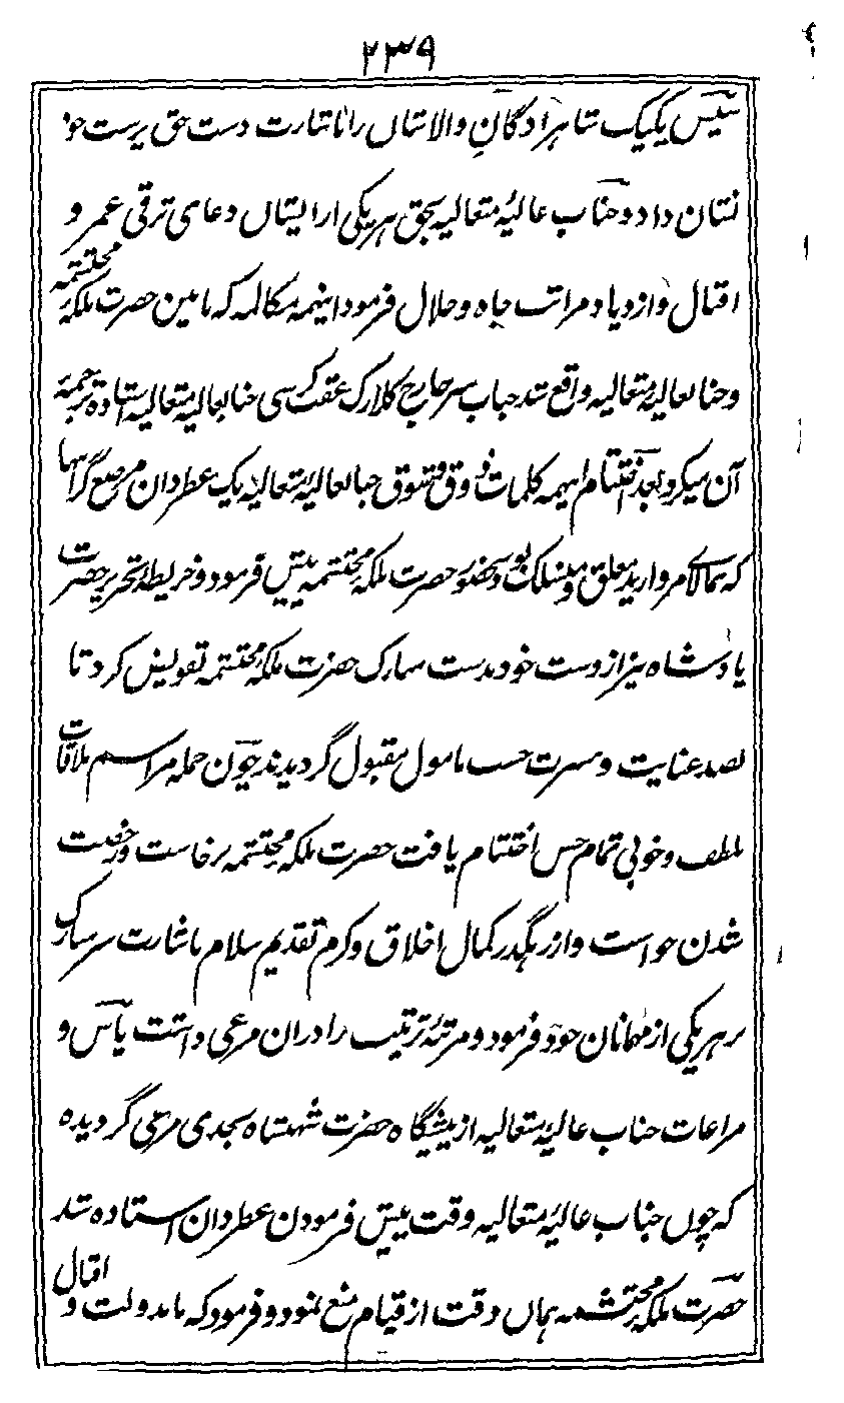 ۲۳۹
پیش یکیک شاهزادگانِ والاشان را باشارت دست حق پرست خود
نشان داد و جناب عالیهٔ متعالیه بحق هر یکی از ایشان دعای ترقی عمر و
اقبال و ازدیاد مراتب جاه و جلال فرمود اینهمه مکالمه که مابین حضرت ملکهٔ محتشمه
و جناب عالیهٔ متعالیه واقع شد جناب سر جارج کلارک عقب کرسی جناب عالیهٔ متعالیه استاده ترجمهٔ
آن میکرد بعد اختتام اینهمه کلمات ذوق و شوق جناب عالیهٔ متعالیه یک عطردان مرصع گرانبها
که بمالای مروارید معلق و منسلک بود بحضور حضرت ملکهٔ محتشمه پیش فرمود و خریطهٔ تحریر حضرت
پادشاه نیز از دست خود بدست مبارک حضرت ملکهٔ محتشمه تفویض کرد تا
بصد عنایت و مسرت حسب مامول مقبول گردیدند چون جمله مراسم ملاقات
بلطف و خوبی تمام حسن اختتام یافت حضرت ملکهٔ محتشمه برخاست و رخصت
شدن خواست و از رهگذر کمال اخلاق و کرم تقدیم سلام باشارت سر مبارک
بر هر یکی از مهمانان خود فرمود و مرتبهٔ ترتیب را دران مرعی داشت پاس و
مراعات جناب عالیهٔ متعالیه از پیشگاه حضرت شهنشاه بیحدی مرعی گردیده
که چون جناب عالیهٔ متعالیه وقت پیش فرمودن عطردان استاده شد
حضرت ملکهٔ محتشمه همان وقت از قیام منع نمود و فرمود که مابدولت و اقبال